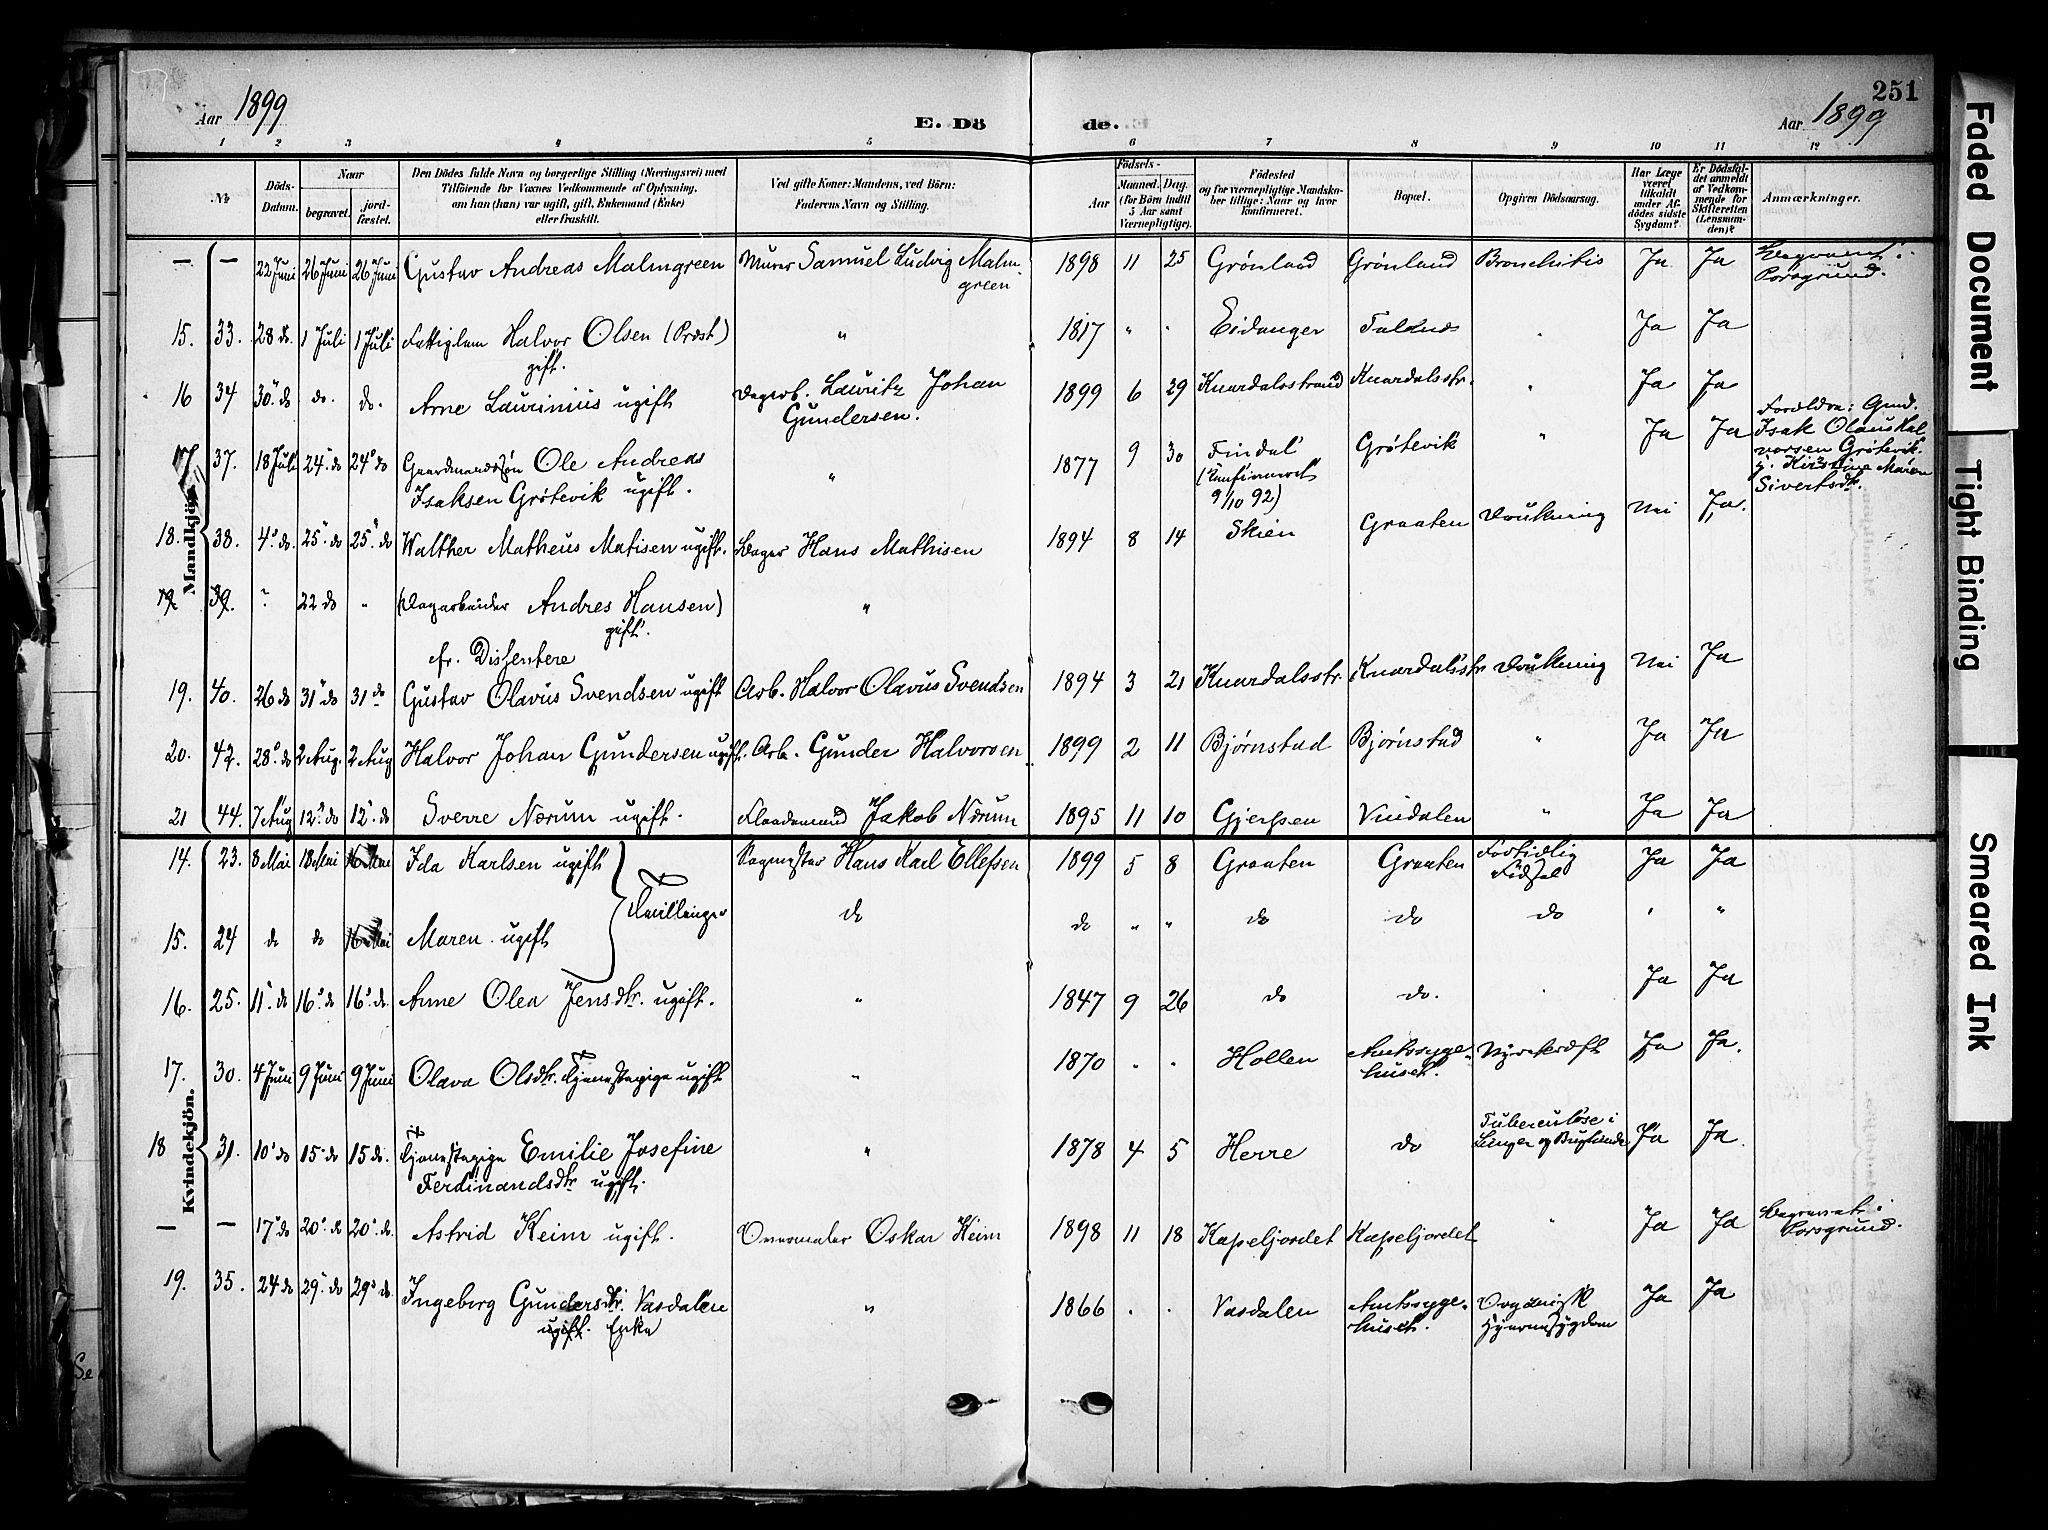 251
Aar 1899
E. Dö
de.
Aar 1899
1 2 3 4 5 6 7 8 9 10 11 12
№
Döds-Datum.
Naar
begravet.
jord-fæstet.
Den Dödes fulde Navn og borgerlige Stilling (Næringsvei) med
Tilföiende for Voxnes Vedkommende af Oplysning,
om han (hun) var ugift, gift, Enkemand (Enke)
eller fraskilt.
Ved gifte Koner: Mandens, ved Börn:
Faderens Navn og Stilling.
Födsels-
Aar
Maaned. Dag.
(for Börn indtil
5 Aar samt
Værnepligtige).
Födested
og for værnepligtige Mandska-
ber tillige: Naar og hvor
konfirmeret.
Bopæl.
Opgiven Dödsaarsag.
Har Læge
været
tilkaldt
under Af-
dödes sidste
Sygdom?
Er Dödsfal-
det anmeldt
af Vedkom-
mende for
Skifteretten
(Lensman-
den)?
Anmærkninger.
Mandkjön.
— — 22 Juni 26 Juni 26 Juni Gustav Andreas Malmgreen Murer Samuel Ludvig Malm-green 1898 11 25 Grönland Grönland Bronchitis Ja Ja Begravet i Porsgrund.
15. 33. 28 do 1 Juli 1 Juli Fattiglem Halvor Olsen (Præst) gift. " 1817 " " Eidanger Ja Ja
16 34 30 do do. do. Arne Laurinius ugift Dagarb. Lauritz Johan Gundersen. 1899 6 29 Knardalsstrand Knardalsstr. " Ja Ja
17 37. 18 Juli 24 do 24 do Gaardmandssøn Ole Andreas Isaksen Grötevik ugift. " 1877 9 30 Findal (Konfirmeret 9/10 92) Grötevik " Ja Ja Forældre: Gmd. Isak Olaus Halvorsen Grötevik og Kirstine Maren Sivertsdtr.
18. 38. 4 do 25 do 25 do Walther Matheus Matisen ugift. Bager Hans Mathisen 1894 8 14 Skien Graaten Drukning Nei Ja.
19 39. ? 22 do " (Dagarbeider Andres Hansen) gift. "
fr. Dissentere
19. 40. 26 do 31 do 31 do Gustav Olavus Svendsen ugift Arb. Halvor Olavus Svendsen 1894 3 21 Knardalsstr. Knardalsstr Drukning Nei Ja
20. 42. 28 do 2 Aug. 2 Aug Halvor Johan Gundersen ugift. Arb. Gunder Halvorsen 1899 2 11 Bjørnstad Bjørnstad " Ja Ja
21 44. 7 Aug 12 do 12 do Sverre Nærum ugift. Jakob Nærum 1895 11 10 Gjerpen Vindalen " Ja Ja
Kvindekjön.
14. 23. 8 Mai 18 Mai 16 Mai Ida Karlsen ugift Tvillinger Hans Karl Ellefsen 1899 5 8 Graaten Graaten Fortidlig Fødsel Ja Ja
15. 24 do do 16 Mai Maren ugift do do " " do do do " "
16. 25. 11 do 16 do 16 do. Anne Olea Jensdtr. ugift. " 1847 9 26 do do. Ja Ja
17. 30. 4 Juni 9 Juni 9 Juni Olava Olsdtr. Tjenestepige ugift " 1870 . . Hollen Amtssygehuset. Nyrekræft Ja Ja.
18 31. 10 do 15 do 15 do. Tjenestepige Emilie Josefine Ferdinandsdtr ugift. " 1878 4 5 Herre do Tuberculose i Lunger og Ja Ja
— — 17 do 20 do 20 do. Astrid Keim ugift. Oskar Keim 1898 11 18 Kapeljordet Kapeljordet " Ja Ja Begravet i Porsgrund.
19. 35. 24 do 29 do 29 do. Ingeborg Gundersdtr. Vasdalen ugift. Enke " 1866 . . Vasdalen Amtssygehuset. Organisk Hjernesygdom Ja Ja
Faded Document
Tight Binding
Smeared Ink